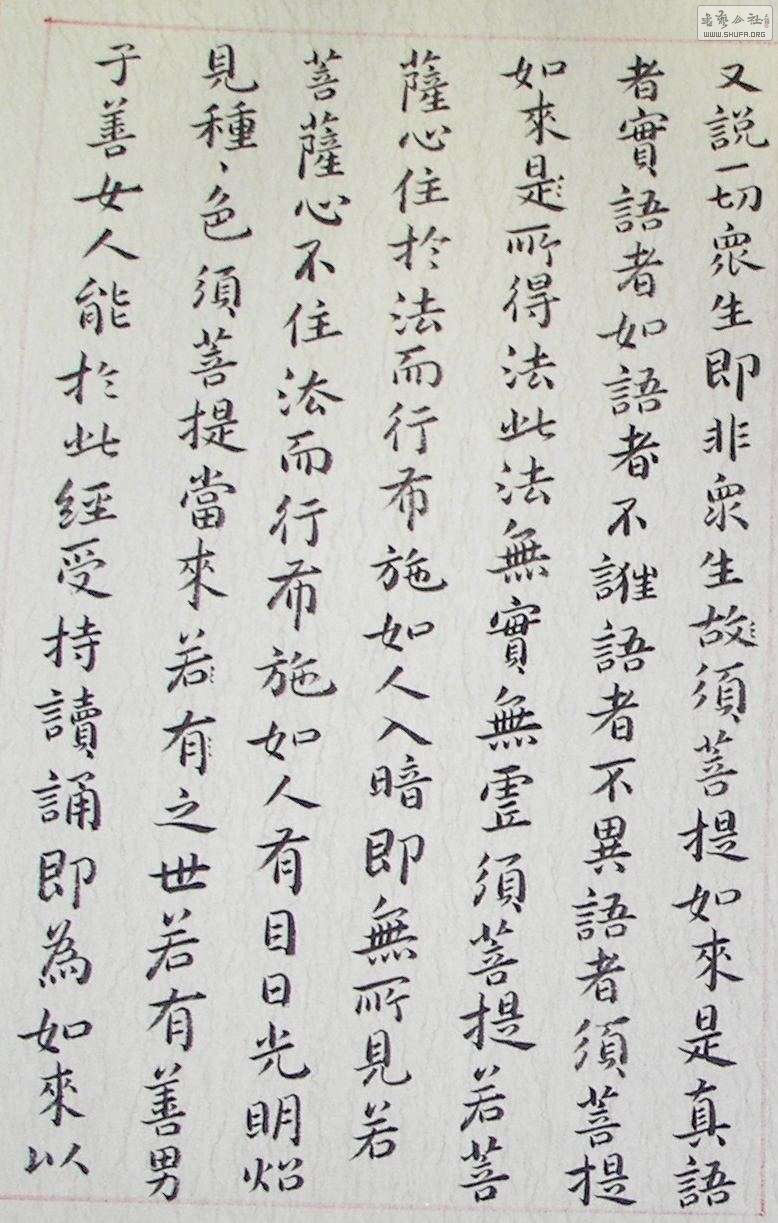 又説一切衆生即非衆生故須菩提如來是真語
者實語者如語者不誰語者不異語者須菩提
如來是所得法此法無實無虛須菩提若菩
薩心住於法而行布施如人入暗即無所見若
菩薩心不住法而行布施如人有目日光明炤
見種、色須菩提當來若有之世若有善男
子善女人能於此經受持讀誦即為如來以
WWW.SHUFA.ORG